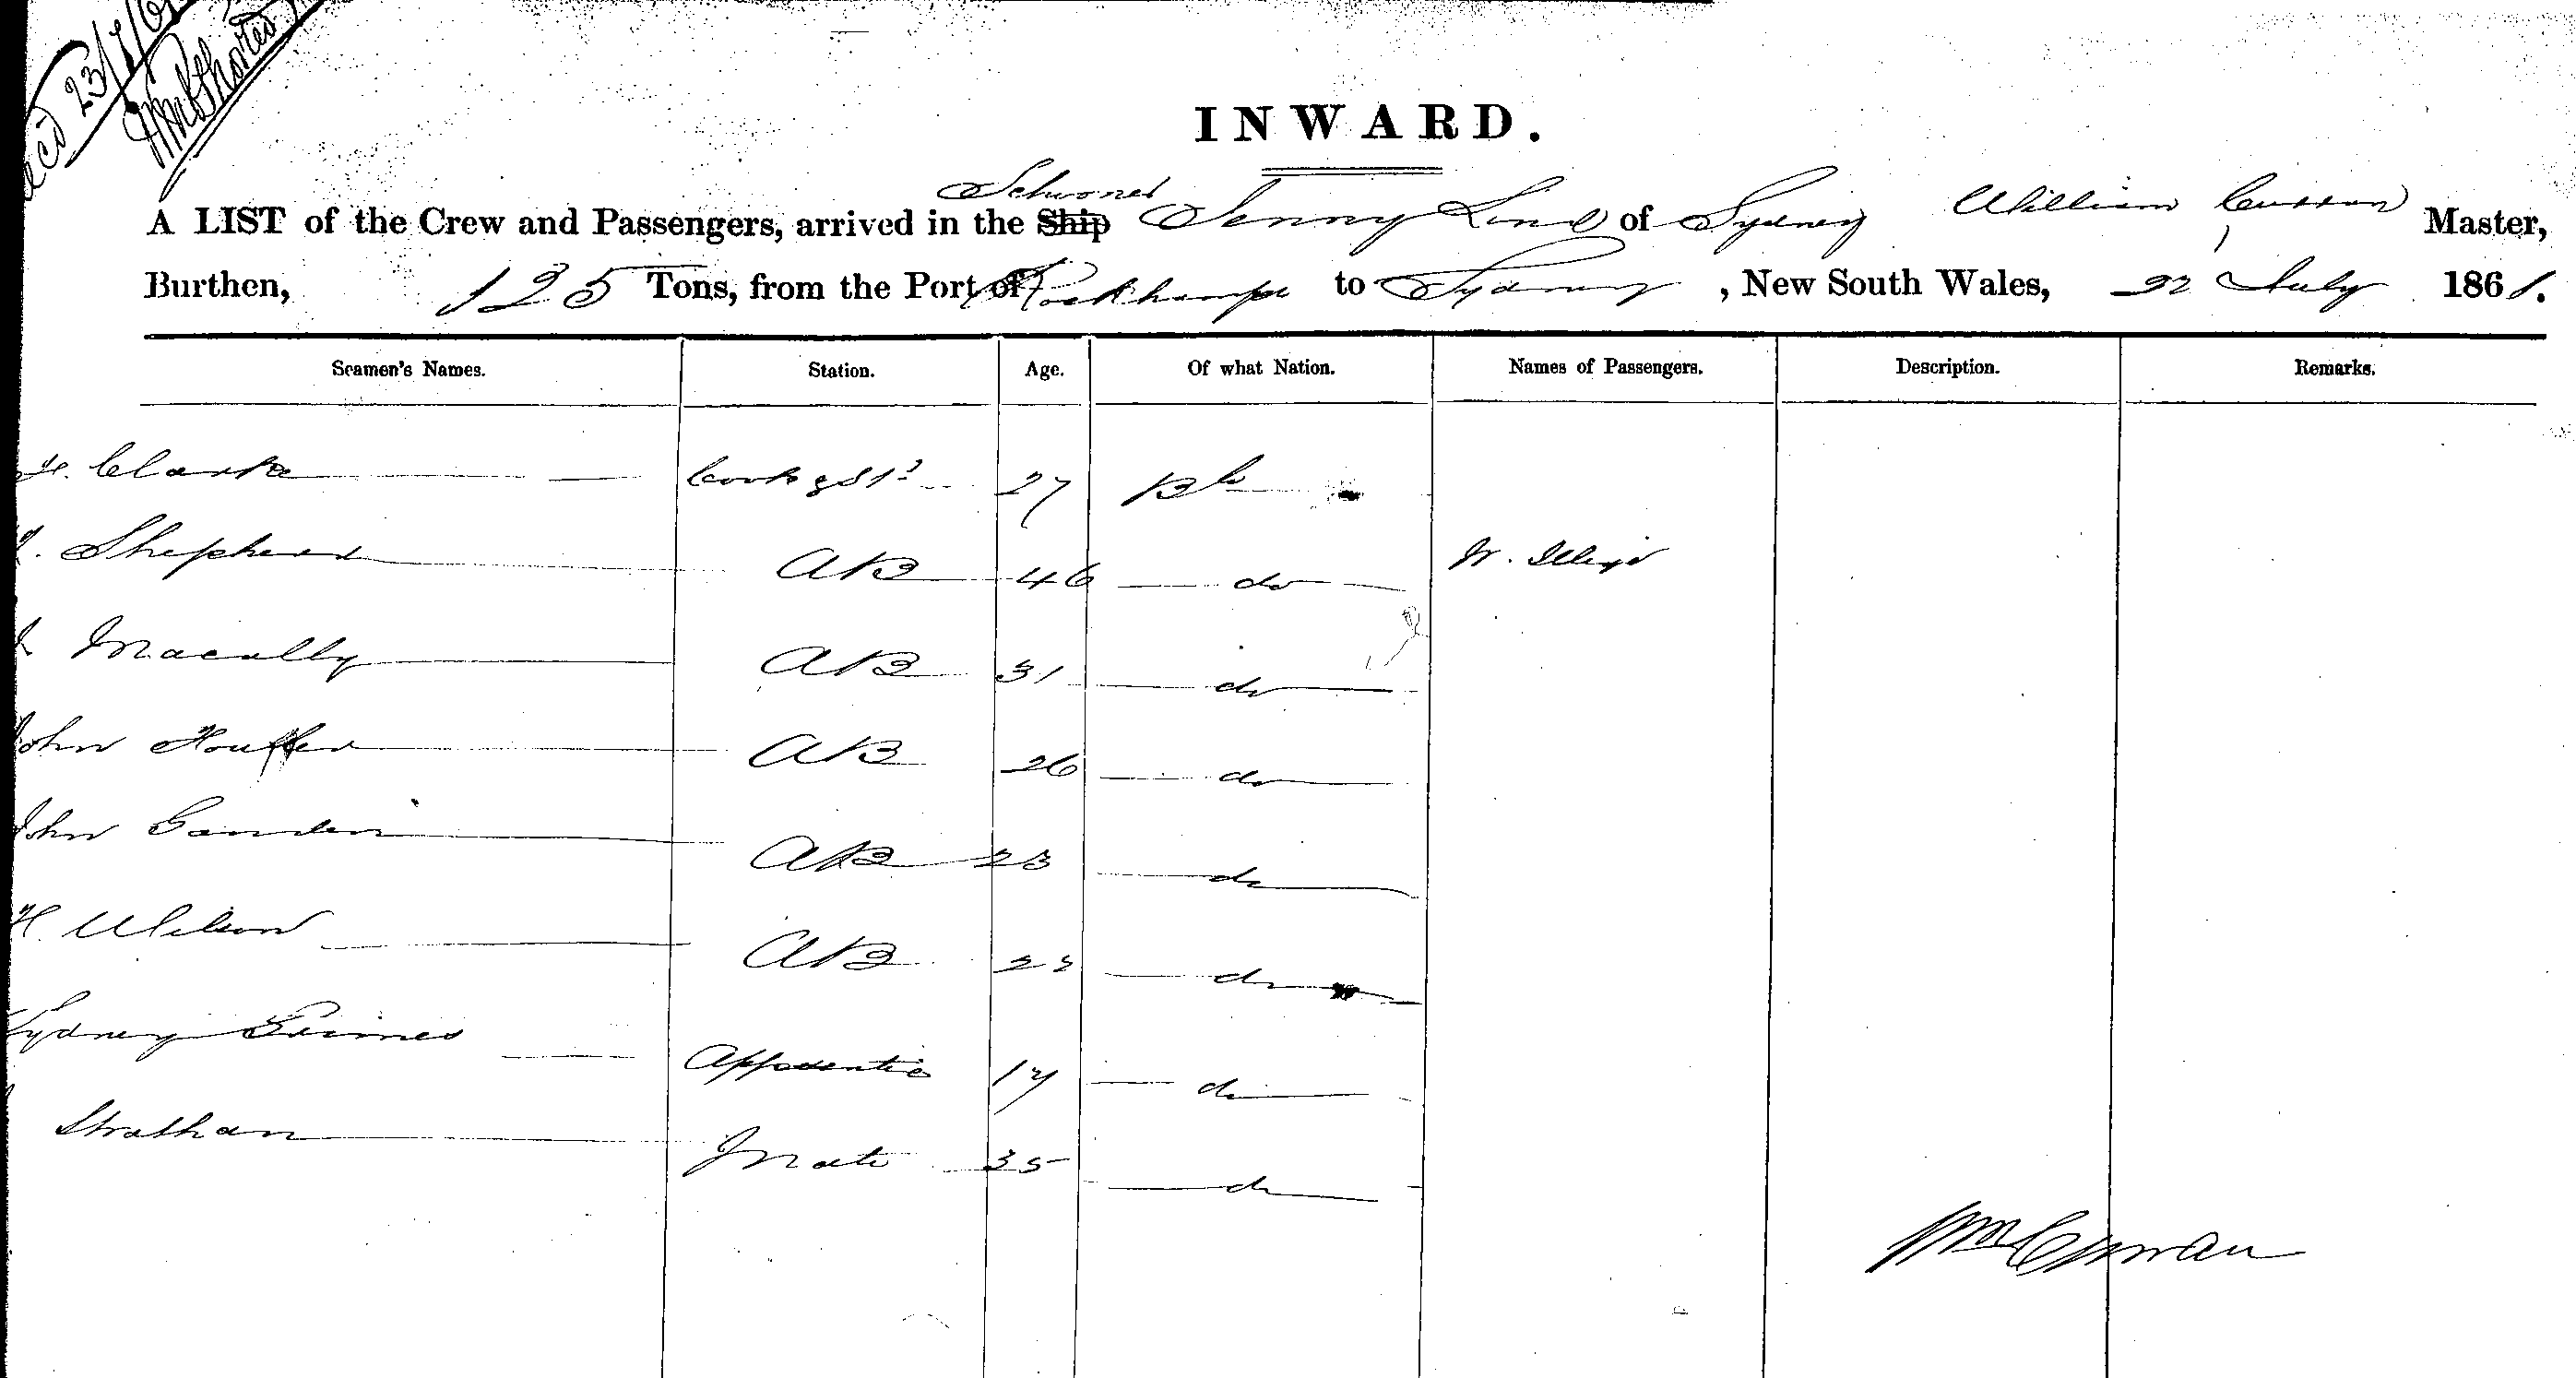 23/7/61
INWARD.
Schooner
A LIST of the Crew and Passengers, arrived in the Ship Jenny Lind of Sydney William Curran Master,
Burthen, 125 Tons, from the Port of Rockhampn to Sydney, New South Wales, 22 July 1861.
Seamen's Names. Station. Age. Of what Nation. Names of Passengers. Description. Remarks.
Clarke Cook & St 27
Shepherd AB 46 do W.
Macally AB 31 do
John AB 26 do
John AB 23 do
H. Wilson AB 22 do
Sydney Grimes Apprentice 17 do
Strathan Mate 35 do
Wm Curran